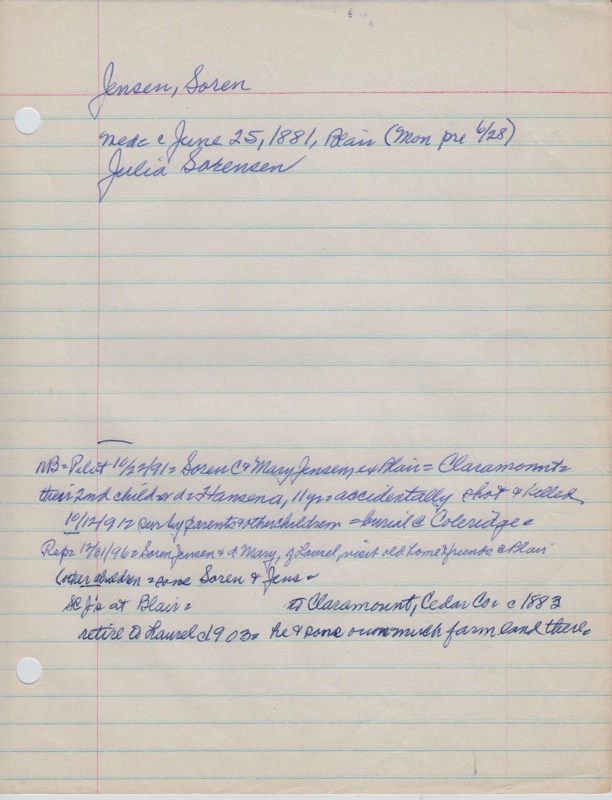 Jensen, Soren
med= c June 25, 1881, Blair (Mon pre 6/28)
Julia Sorensen
NB= Pilot 10/22/91= Soren C & Mary Jensen, ex Blair = Claramount=
their 2nd child & d= Hansena, 11 y= accidentally shot & killed
10/12/91= sur by parents & other children = burial @ Coleridge=
Rep= 12/31/96= Soren Jensen & d Mary, of Laurel, visit old home & frunds @ Blair
(other children = sons Soren & Jens=
SC J's at Blair= to Claramount, Cedar Co= c 1883
retire to Laurel c1903= he & sons own much farm land there=